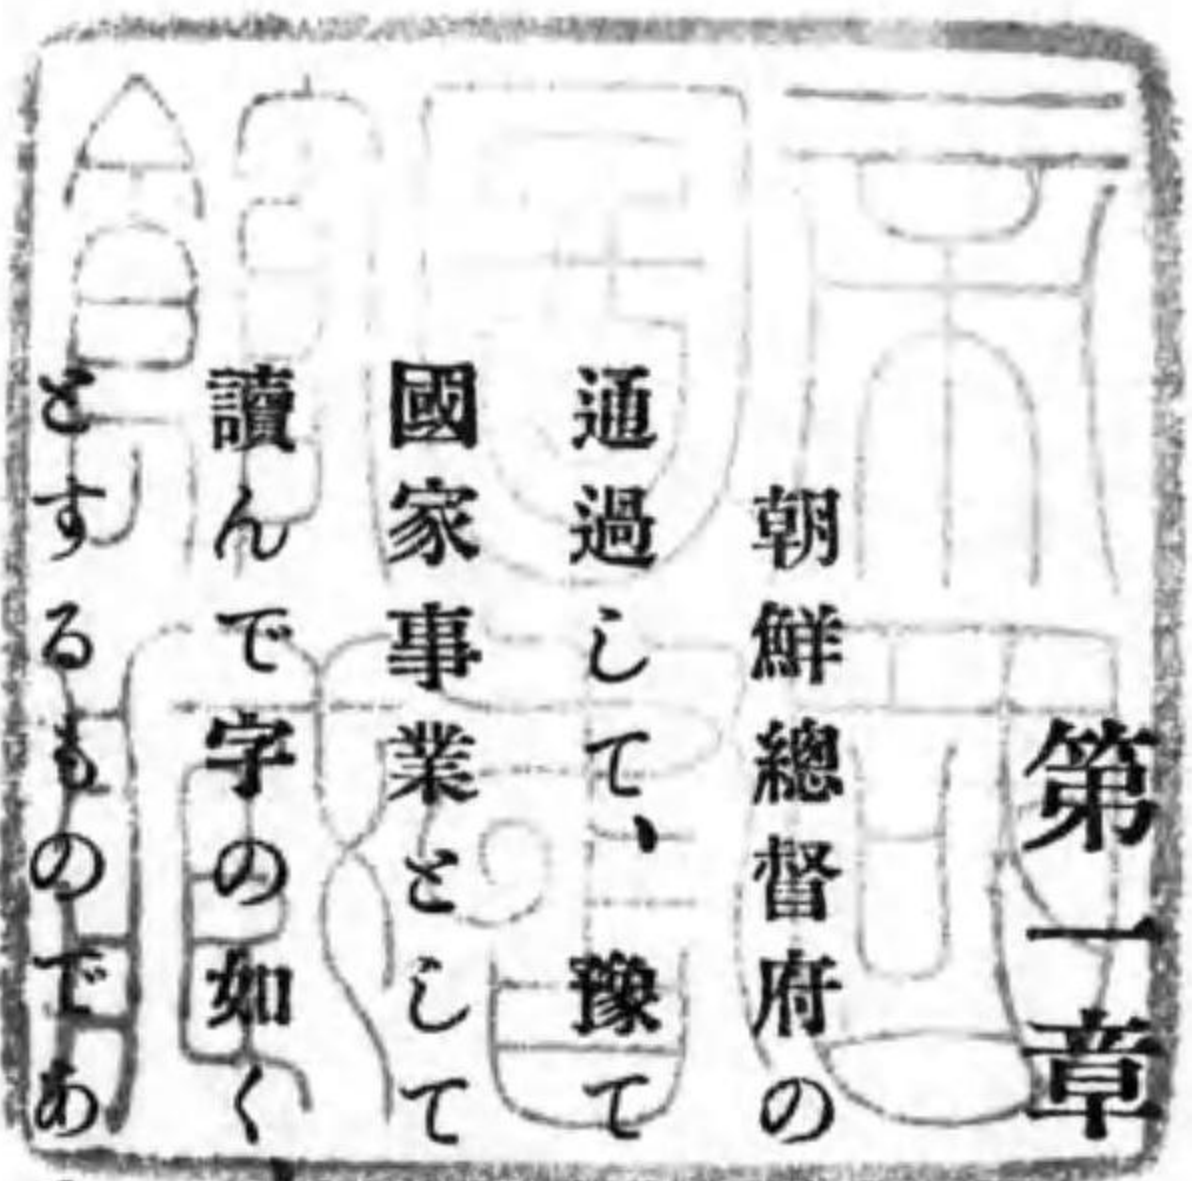 第一章
朝鮮總督府の
通過して、豫て
國家事業として
讀んで字の如く、
とするものであ